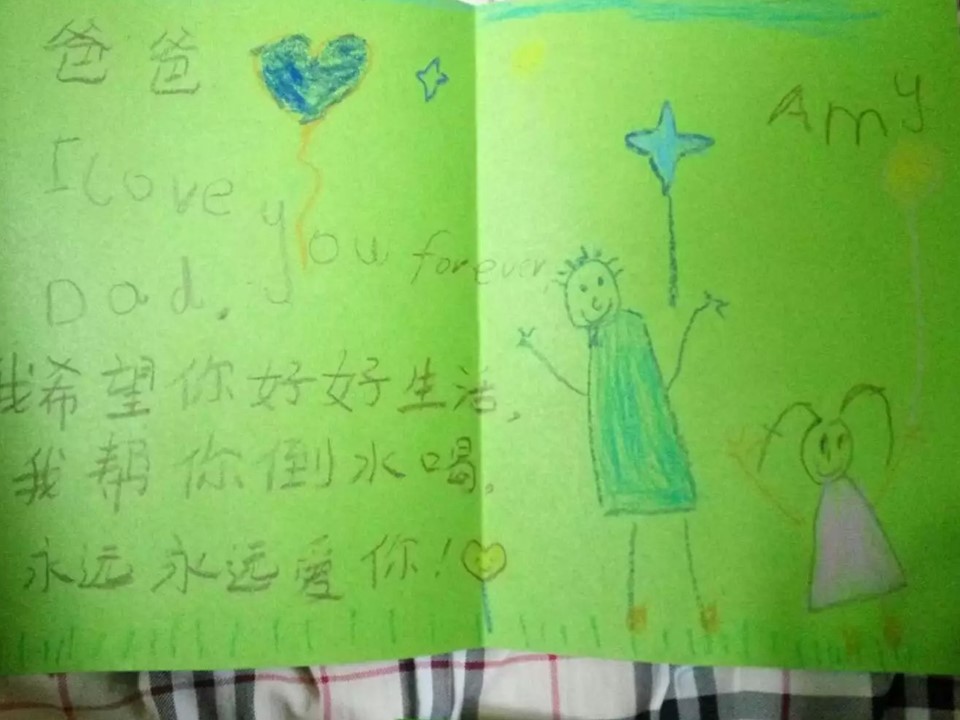 爸爸
I love you forever,
Dad.
我希望你好好生活,
我帮你倒水喝。
永远永远爱你!
Amy